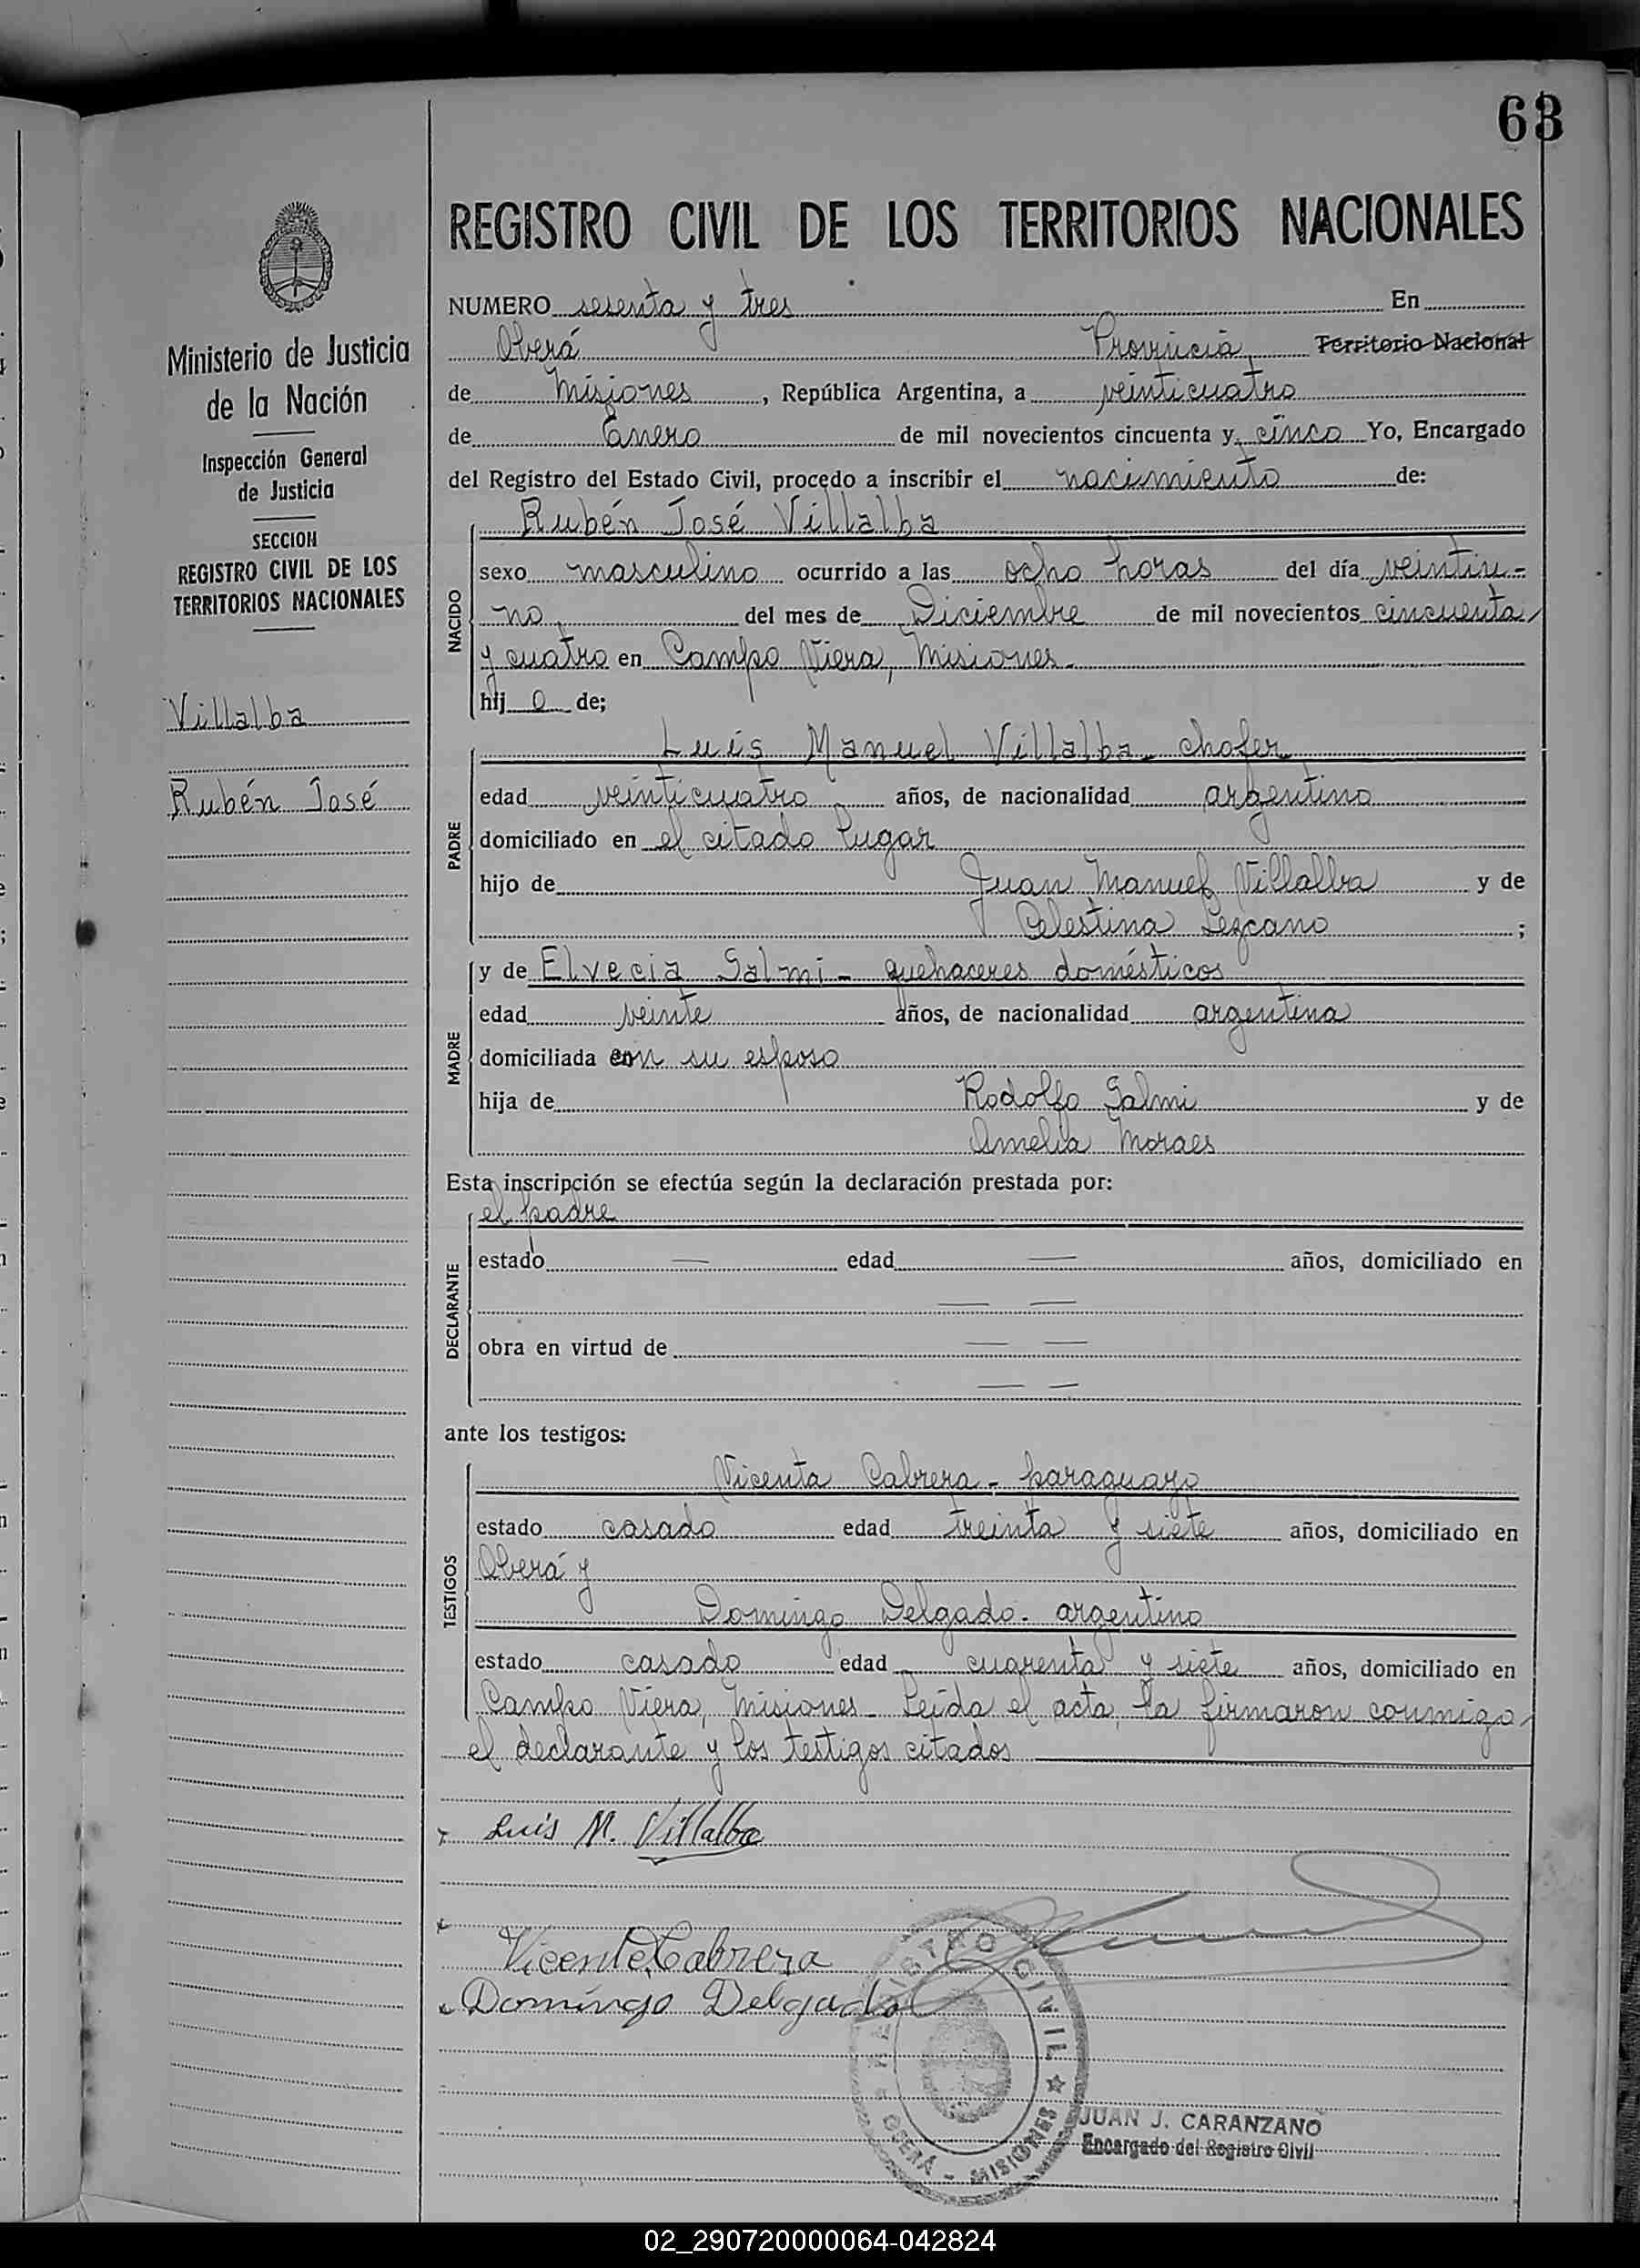 63
REGISTRO CIVIL DE LOS TERRITORIOS NACIONALES
Ministerio de Justicia
de la Nación
Inspección General
de Justicia
SECCION
REGISTRO CIVIL DE LOS
TERRITORIOS NACIONALES
Villalba
Rubén José
NUMERO sesenta y tres En
Oberá Provincia Territorio Nacional
de Misiones, República Argentina, a veinticuatro
de Enero de mil novecientos cincuenta y cinco Yo, Encargado
del Registro del Estado Civil, procedo a inscribir el nacimiento de:
NACIDO
Rubén José Villalba
sexo masculino ocurrido a las ocho horas del día veintiu-
no del mes de Diciembre de mil novecientos cincuenta
y cuatro en Campo Viera, Misiones.
hij o de;
PADRE
Luis Manuel Villalba - chofer
edad veinticuatro años, de nacionalidad argentino
domiciliado en el citado lugar
hijo de Juan Manuel Villalba y de
Celestina Lezcano ;
MADRE
y de Elvecia Salmi - quehaceres domésticos
edad veinte años, de nacionalidad argentina
domiciliada con su esposo
hija de Rodolfo Salmi y de
Amelia Moraes
Esta inscripción se efectúa según la declaración prestada por:
DECLARANTE
el padre
estado — edad — años, domiciliado en
— —
obra en virtud de — —
— —
ante los testigos:
TESTIGOS
Vicenta Cabrera - paraguayo
estado casado edad treinta y siete años, domiciliado en
Oberá y
Domingo Delgado - argentino
estado casado edad cuarenta y siete años, domiciliado en
Campo Viera, Misiones - Leída el acta, la firmaron conmigo
el declarante y los testigos citados
Luis M. Villalba
Vicente Cabrera
Domingo Delgado
REGISTRO CIVIL
OBERÁ - MISIONES
JUAN J. CARANZANO
Encargado del Registro Civil
02_290720000064-042824